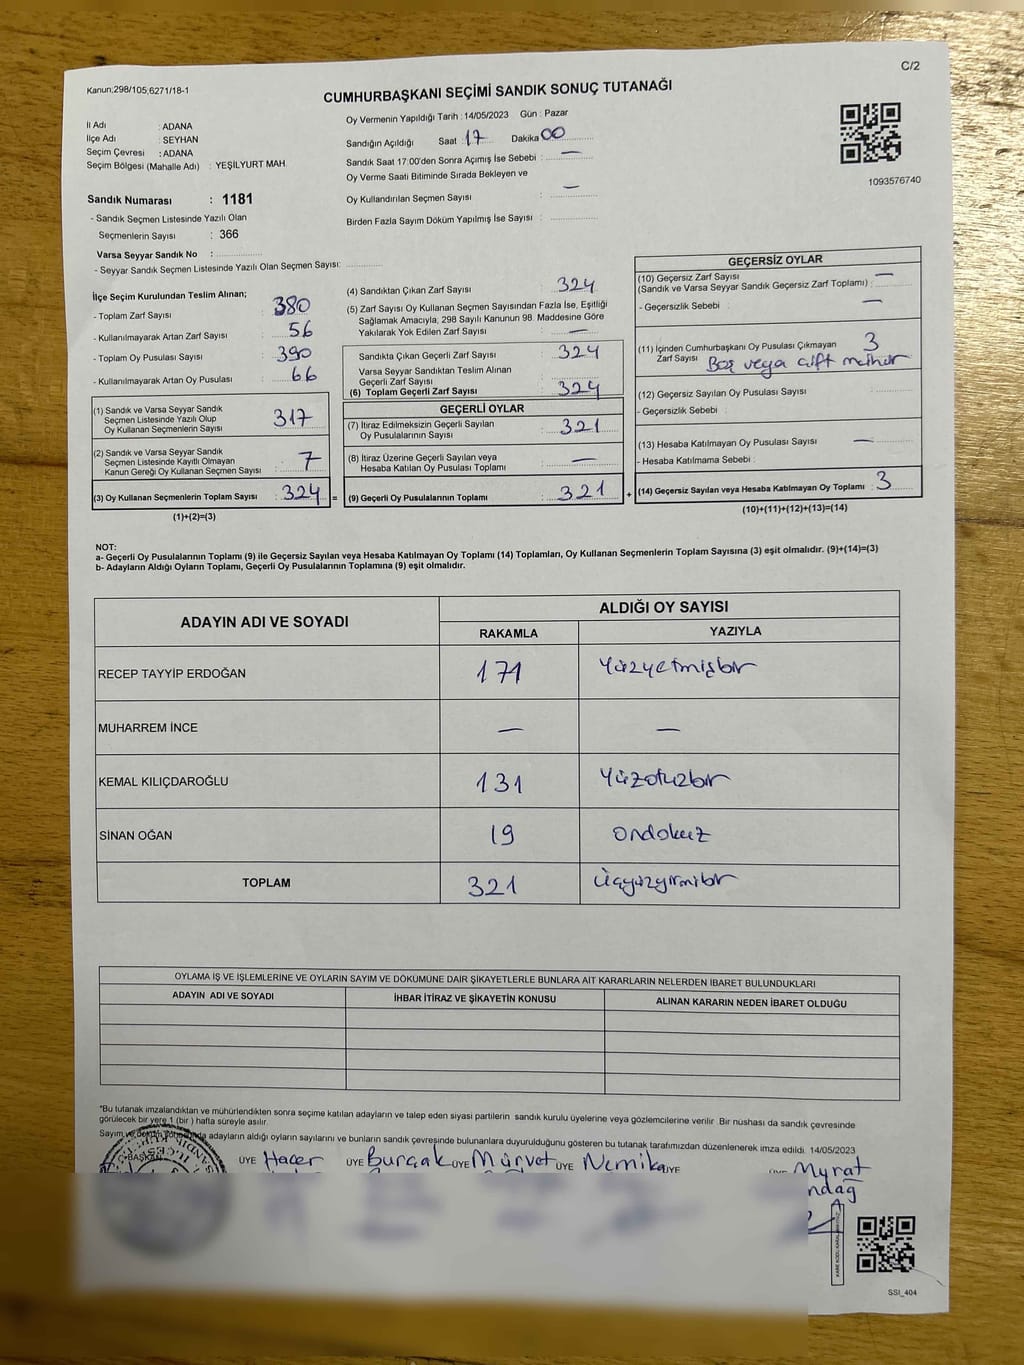 C/2
Kanun;298/105,6271/18-1
CUMHURBAŞKANI SEÇİMİ SANDIK SONUÇ TUTANAĞI
İl Adı : ADANA
İlçe Adı : SEYHAN
Seçim Çevresi : ADANA
Seçim Bölgesi (Mahalle Adı) : YEŞİLYURT MAH.
Sandık Numarası : 1181
- Sandık Seçmen Listesinde Yazılı Olan
Seçmenlerin Sayısı : 366
Varsa Seyyar Sandık No :
- Seyyar Sandık Seçmen Listesinde Yazılı Olan Seçmen Sayısı:
Oy Vermenin Yapıldığı Tarih : 14/05/2023 Gün : Pazar
Sandığın Açıldığı Saat : 17 Dakika 00
Sandık Saat 17:00'den Sonra Açımış İse Sebebi : —
Oy Verme Saati Bitiminde Sırada Bekleyen ve
Oy Kullandırılan Seçmen Sayısı : —
Birden Fazla Sayım Döküm Yapılmış İse Sayısı :
1093576740
İlçe Seçim Kurulundan Teslim Alınan;
- Toplam Zarf Sayısı : 380
- Kullanılmayarak Artan Zarf Sayısı : 56
- Toplam Oy Pusulası Sayısı : 390
- Kullanılmayarak Artan Oy Pusulası : 66
(1) Sandık ve Varsa Seyyar Sandık
Seçmen Listesinde Yazılı Olup
Oy Kullanan Seçmenlerin Sayısı : 317
(2) Sandık ve Varsa Seyyar Sandık
Seçmen Listesinde Kayıtlı Olmayan
Kanun Gereği Oy Kullanan Seçmen Sayısı : 7
(3) Oy Kullanan Seçmenlerin Toplam Sayısı : 324 =
(1)+(2)=(3)
(4) Sandıktan Çıkan Zarf Sayısı : 324
(5) Zarf Sayısı Oy Kullanan Seçmen Sayısından Fazla İse, Eşitliği
Sağlamak Amacıyla, 298 Sayılı Kanunun 98. Maddesine Göre
Yakılarak Yok Edilen Zarf Sayısı : —
Sandıkta Çıkan Geçerli Zarf Sayısı : 324
Varsa Seyyar Sandıktan Teslim Alınan
Geçerli Zarf Sayısı
(6) Toplam Geçerli Zarf Sayısı : 324
GEÇERLİ OYLAR
(7) İtiraz Edilmeksizin Geçerli Sayılan
Oy Pusulalarının Sayısı : 321
(8) İtiraz Üzerine Geçerli Sayılan veya
Hesaba Katılan Oy Pusulası Toplamı : —
(9) Geçerli Oy Pusulalarının Toplamı : 321 +
GEÇERSİZ OYLAR
(10) Geçersiz Zarf Sayısı
(Sandık ve Varsa Seyyar Sandık Geçersiz Zarf Toplamı) : —
- Geçersizlik Sebebi : —
(11) İçinden Cumhurbaşkanı Oy Pusulası Çıkmayan
Zarf Sayısı : 3
Boş veya çift mühür
(12) Geçersiz Sayılan Oy Pusulası Sayısı :
- Geçersizlik Sebebi :
(13) Hesaba Katılmayan Oy Pusulası Sayısı : —
- Hesaba Katılmama Sebebi :
(14) Geçersiz Sayılan veya Hesaba Katılmayan Oy Toplamı : 3
(10)+(11)+(12)+(13)=(14)
NOT:
a- Geçerli Oy Pusulalarının Toplamı (9) ile Geçersiz Sayılan veya Hesaba Katılmayan Oy Toplamı (14) Toplamları, Oy Kullanan Seçmenlerin Toplam Sayısına (3) eşit olmalıdır. (9)+(14)=(3)
b- Adayların Aldığı Oyların Toplamı, Geçerli Oy Pusulalarının Toplamına (9) eşit olmalıdır.
ADAYIN ADI VE SOYADI ALDIĞI OY SAYISI
RAKAMLA YAZIYLA
RECEP TAYYİP ERDOĞAN 171 Yüzyetmişbir
MUHARREM İNCE — —
KEMAL KILIÇDAROĞLU 131 Yüzotuzbir
SİNAN OĞAN 19 ondokuz
TOPLAM 321 Üçyüzyirmibir
OYLAMA İŞ VE İŞLEMLERİNE VE OYLARIN SAYIM VE DÖKÜMÜNE DAİR ŞİKAYETLERLE BUNLARA AİT KARARLARIN NELERDEN İBARET BULUNDUKLARI
ADAYIN ADI VE SOYADI İHBAR İTİRAZ VE ŞİKAYETİN KONUSU ALINAN KARARIN NEDEN İBARET OLDUĞU
*Bu tutanak imzalandıktan ve mühürlendikten sonra seçime katılan adayların ve talep eden siyasi partilerin sandık kurulu üyelerine veya gözlemcilerine verilir. Bir nüshası da sandık çevresinde
görülecek bir yere 1 (bir ) hafta süreyle asılır.
Sayım ve döküm sonunda adayların aldığı oyların sayılarını ve bunların sandık çevresinde bulunanlara duyurulduğunu gösteren bu tutanak tarafımızdan düzenlenerek imza edildi. 14/05/2023
BAŞKAN ÜYE Hacer ÜYE Burçak ÜYE Mürvet ÜYE Nemika ÜYE Murat
ndağ
SSI_404